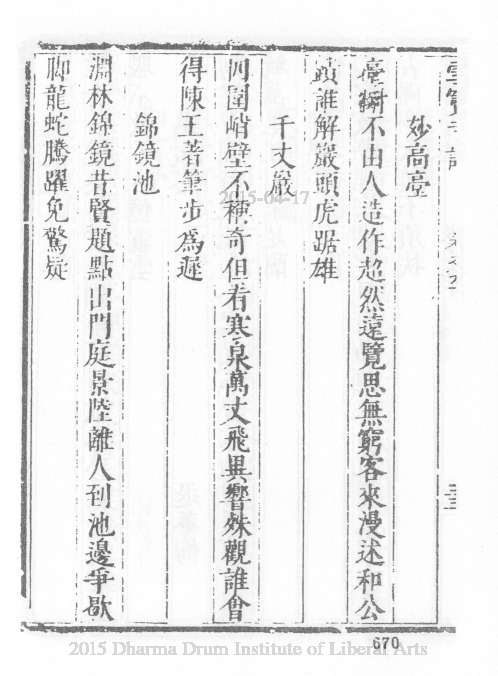 妙高臺
臺獨不由人造作超然遠覽思無窮客來漫述和公
蹟誰解巖頭虎踞雄
千丈巖
四圍峭壁不種奇但看寒泉萬丈飛異響殊觀誰會
得陳王著筆步為遲
錦鏡池
淵林錦鏡昔賢題點出門庭景陸離人到池邊爭歇
脚龍蛇騰躍免驚疑
2015-04-17
670
2015 Dharma Drum Institute of Liberal Arts